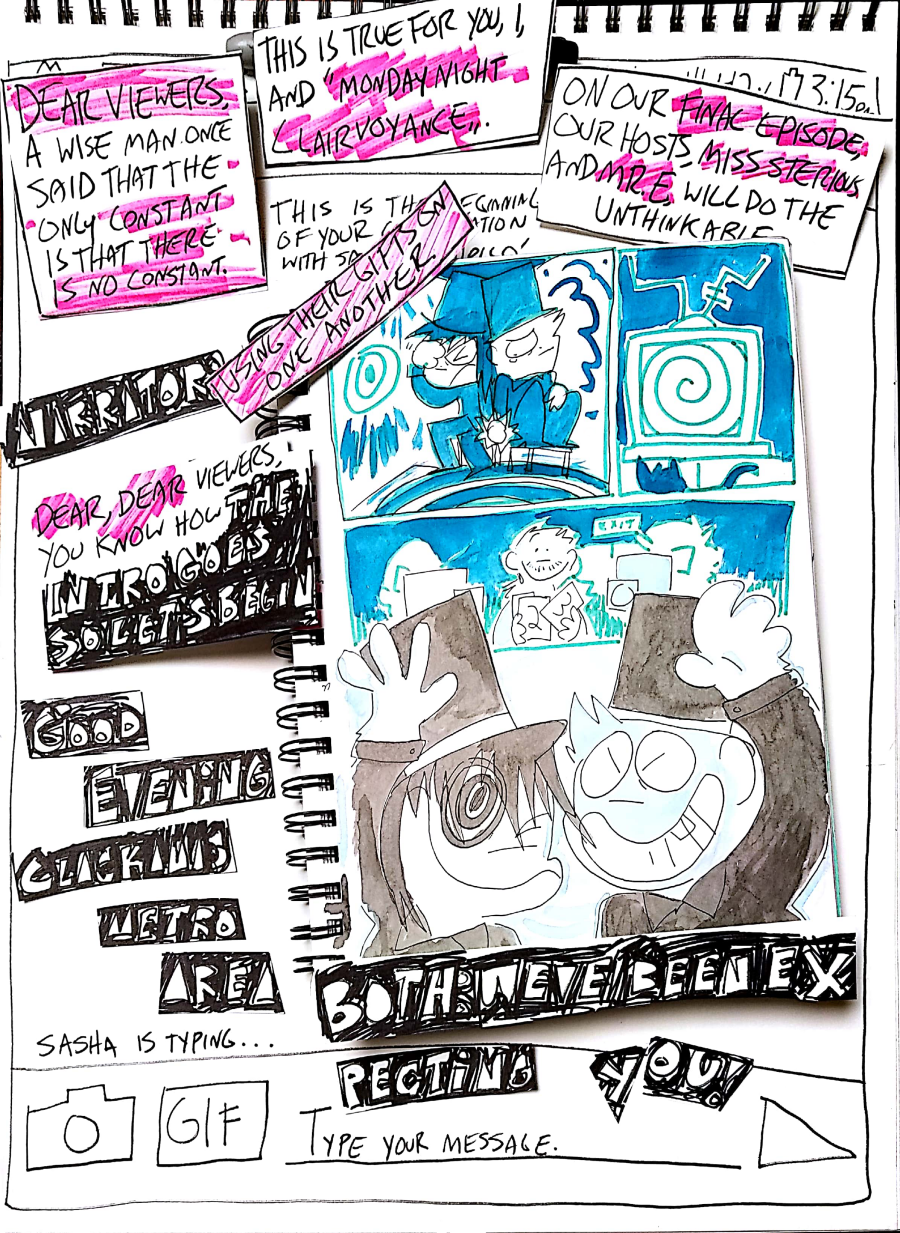 DEAR VIEWERS,
A WISE MAN ONCE
SAID THAT THE
ONLY CONSTANT
IS THAT THERE
IS NO CONSTANT.
THIS IS TRUE FOR YOU, I,
AND "MONDAY NIGHT
CLAIRVOYANCE".
3:15
ON OUR FINAL EPISODE,
OUR HOSTS, MISS STERIOUS
AND MR. E, WILL DO THE
UNTHINKABLE
THIS IS THE BEGINNING
OF YOUR
WITH
USING THEIR GIFTS ON
ONE ANOTHER.
NARRATOR:
DEAR, DEAR VIEWERS,
YOU KNOW HOW THE
INTRO GOES
SO LET'S BEGIN
EXIT
GOOD
EVENING
CLACKAMAS
METRO
AREA
BOTH: WE'VE BEEN EX
PECTING YOU!
SASHA IS TYPING...
GIF
TYPE YOUR MESSAGE.